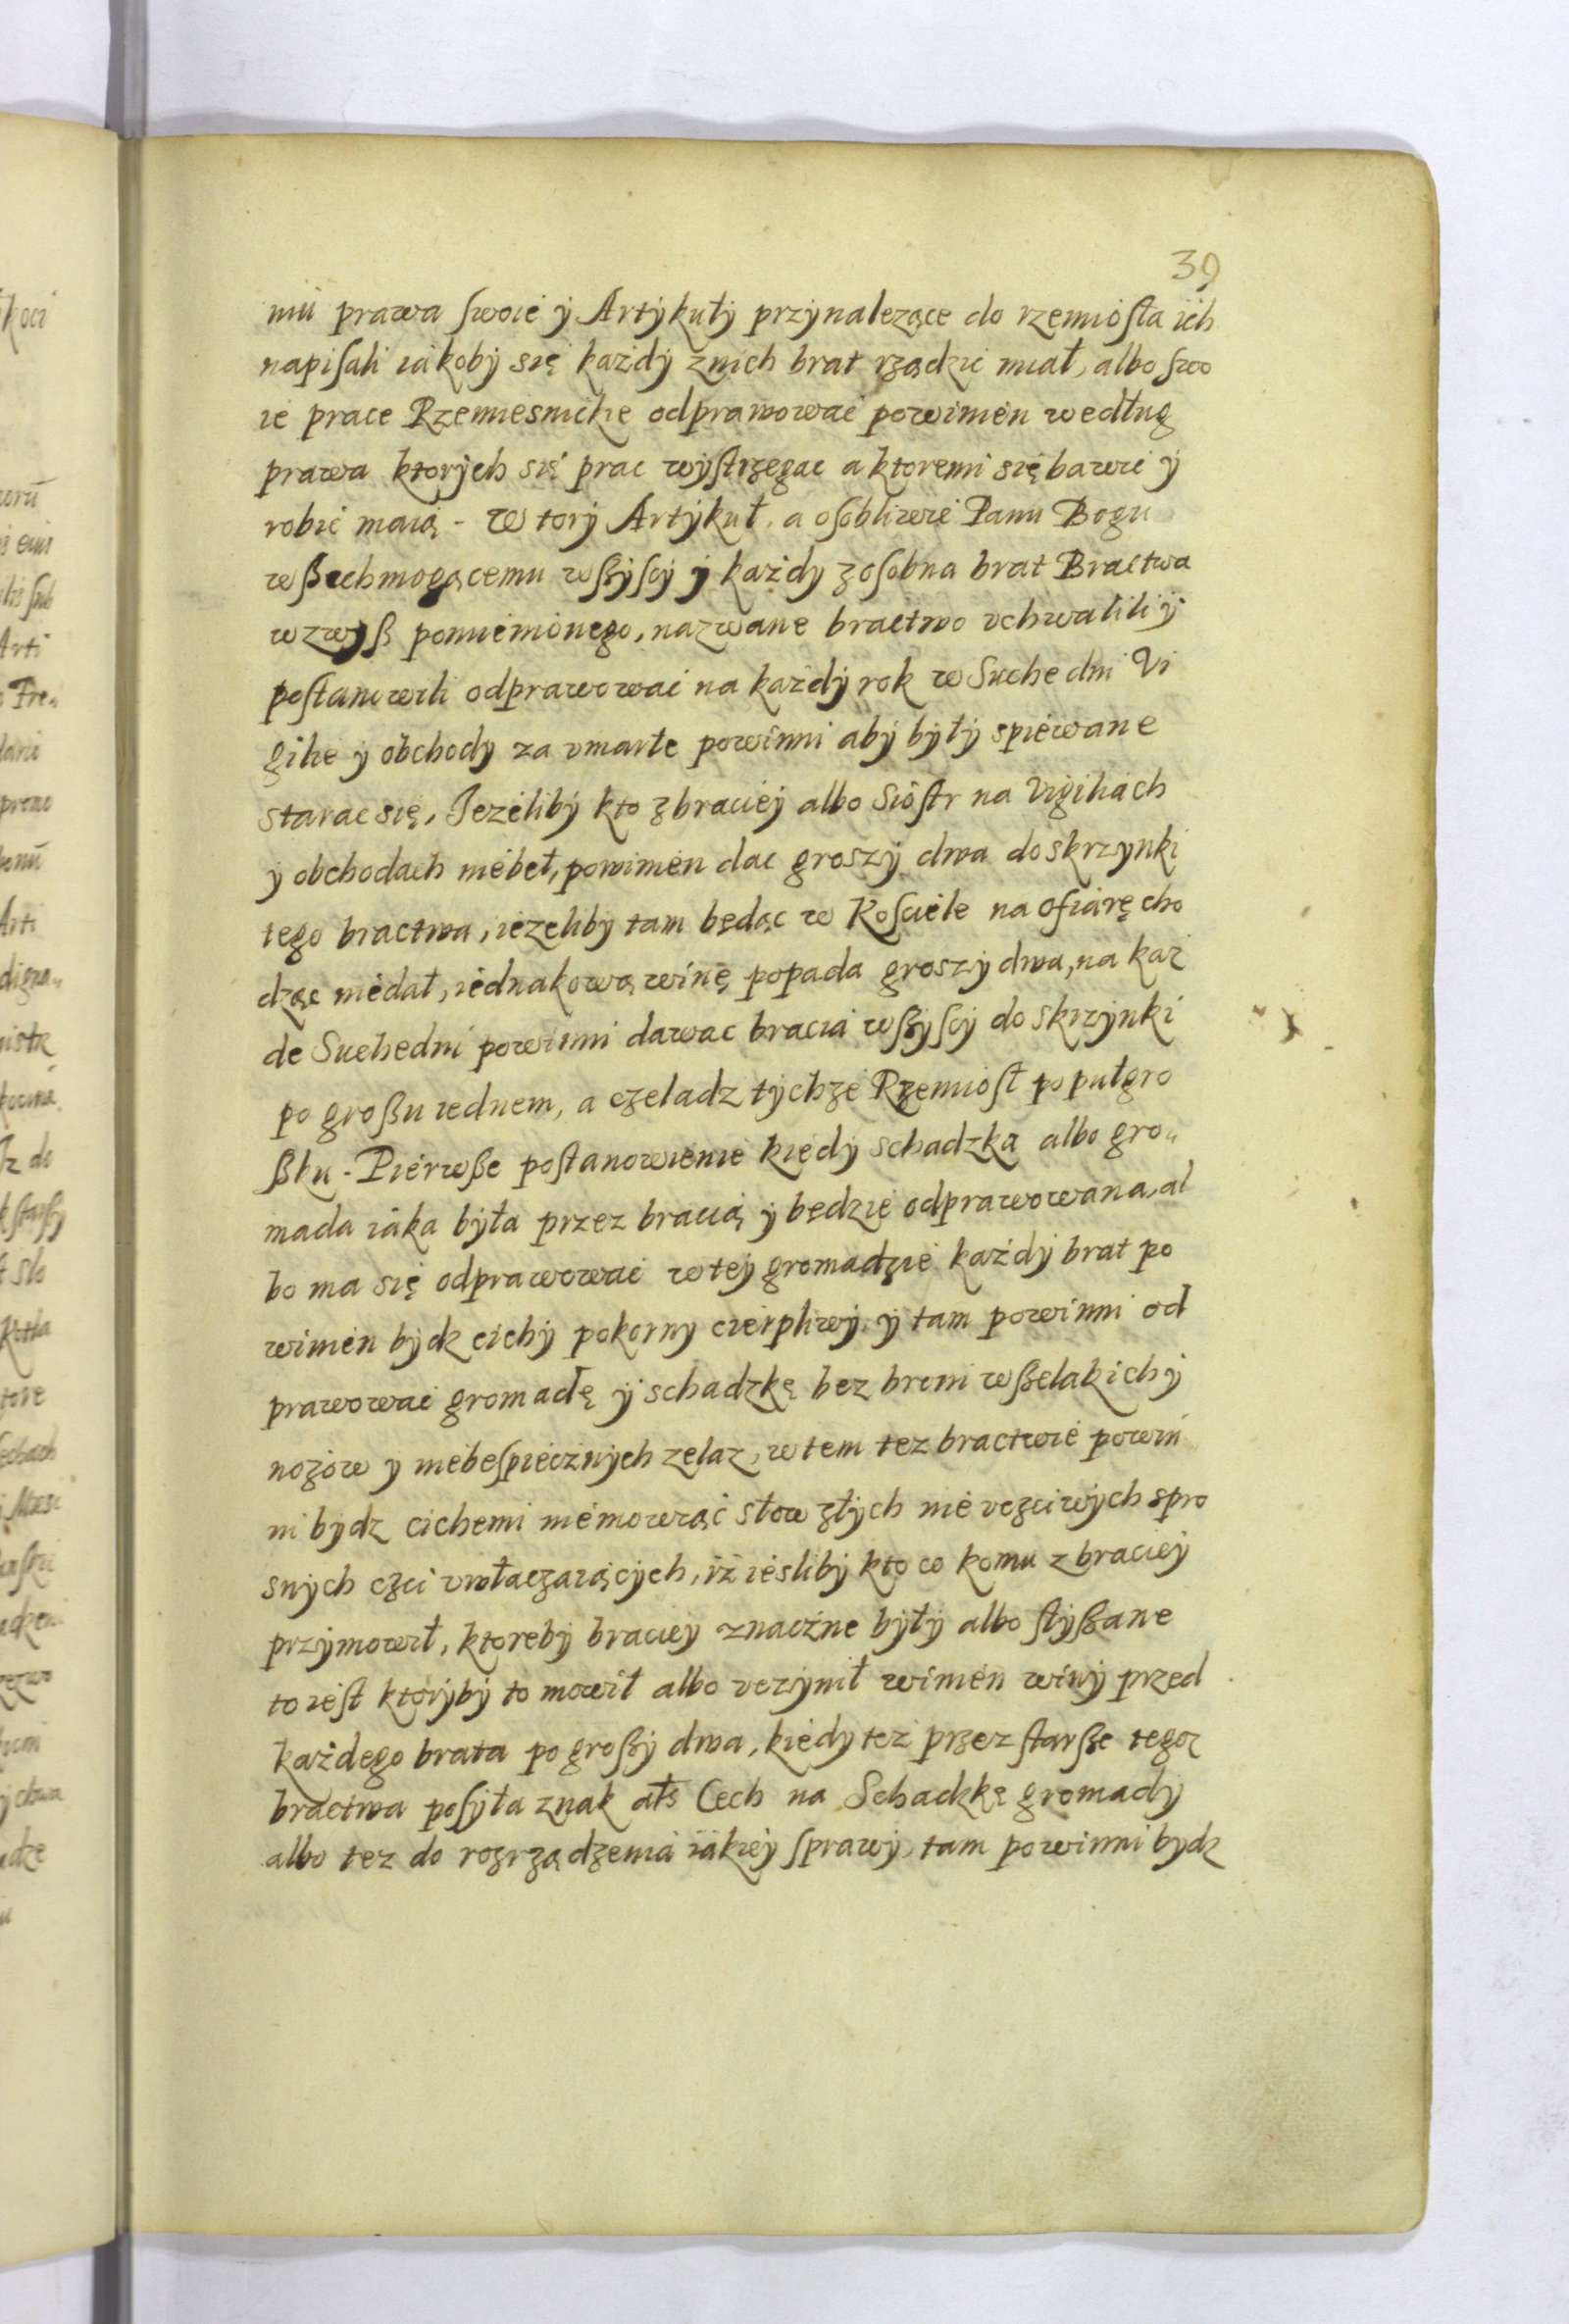 39
niu prawa swoie ÿ Artÿkułÿ przÿnalezące do rzemiosła ich
napisali iakobÿ się każdÿ znich brat rządzic miał, albo swo
ie prace Rzemiesnickie odprawowac powinien według
prawa ktorÿch się prac wÿstrzegac a ktoremi się bawic ÿ
robic maią - W torÿ Artÿkuł, a osobliwie Panu Bogu
wßechmogącemu wßÿscÿ ÿ każdy zosobna brat Bractwa
wzwÿß pomienionego, nazwane bractwo vchwalili ÿ
postanowili odprawowac na każdÿ rok w Suche dni Vi
gilie ÿ obchody za vmarłe powinni abÿ bÿłÿ spiewane
starac się, Jeżelibÿ kto zbraciéÿ albo Siostr na Vigiliach
ÿ obchodach niebeł, powinien dac groszÿ dwa do skrzynki
tego bractwa, iezelibÿ tam będąc w Kosciele na ofiarę cho
dząc niedał, iednakową winę popada groszÿ dwa, na każ
de Suchedni powinni dawac bracia wßÿscÿ do skrzÿnki
po großu iednem, a czeladz tÿchze Rzemiosł po pułgro
ßku - Pierwße postanowienie kiedÿ schadzka albo gro
mada iaka bÿła przez bracią ÿ będzie odprawowana, al
bo ma się odprawowac wteÿ gromadzie każdÿ brat po
winien bÿdz cichÿ pokorny cierpliwÿ ÿ tam powinni od
prawowac gromadę ÿ schadzkę bez broni wßelakich ÿ
nożow y niebespiecznÿch zelaz, w tem tez bractwie powin
ni bÿdz cichemi niemowiąc słow złÿch nie vczciwÿch spro
snÿch czci vwłaczaiącÿch, iż ieslibÿ kto co komu z braciéÿ
przÿmowił, ktorebÿ braciey znaczne bÿłÿ albo słÿßane
to iest ktorÿbÿ to mowił albo vczÿnił winien winÿ przed
każdego brata po großÿ dwa, kiedy też przez starße tegoz
bractwa posÿła znak ałs Cech na Schadzkę gromadÿ
albo tez do rozrządzenia iakieÿ sprawÿ tam powinni bydz